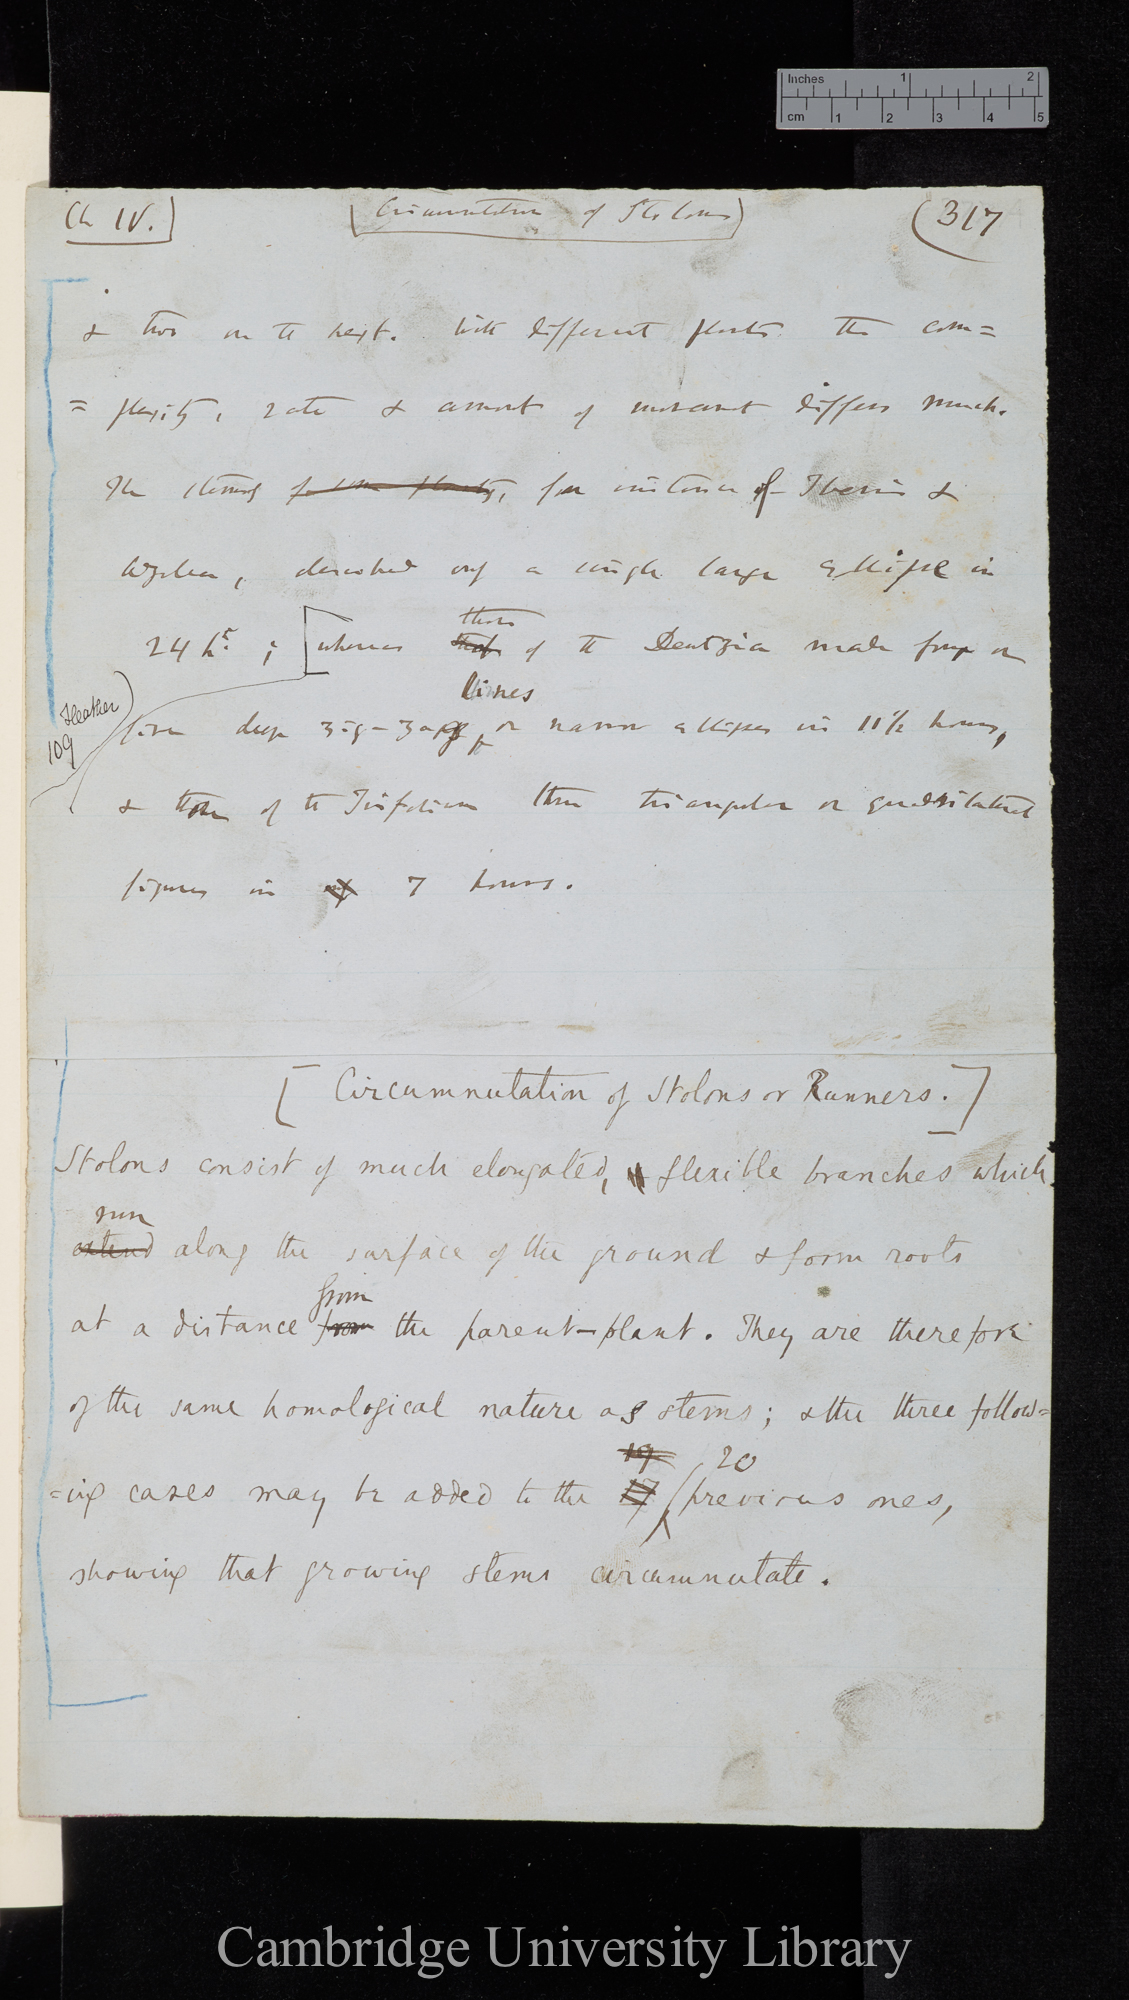 Inches 1 2
cm 1 2 3 4 5
Ch IV.
Circumnutation of Stolons
317
& two on the next. With different plants the com=
=plexity, rate & amount of movement differs much.
The stems of some plants, for instance of Iberis &
Azalea, described only a single large ellipse in
those
24 hrs; [whereas those of the Deutzia made four or
lines
Heather
109
five deep zig-zags or narrow ellipses in 11½ hours,
& those of the Trifolium three triangular or quadrilateral
figures in only 7 hours.
[Circumnutation of Stolons or Runners.]
Stolons consist of much elongated, flexible branches which
run
extend along the surface of the ground & form roots
from
at a distance from the parent-plant. They are therefore
of the same homological nature as stems; & the three follow=
19 20
=ing cases may be added to the 17 previous ones,
showing that growing stems circumnutate.
Cambridge University Library